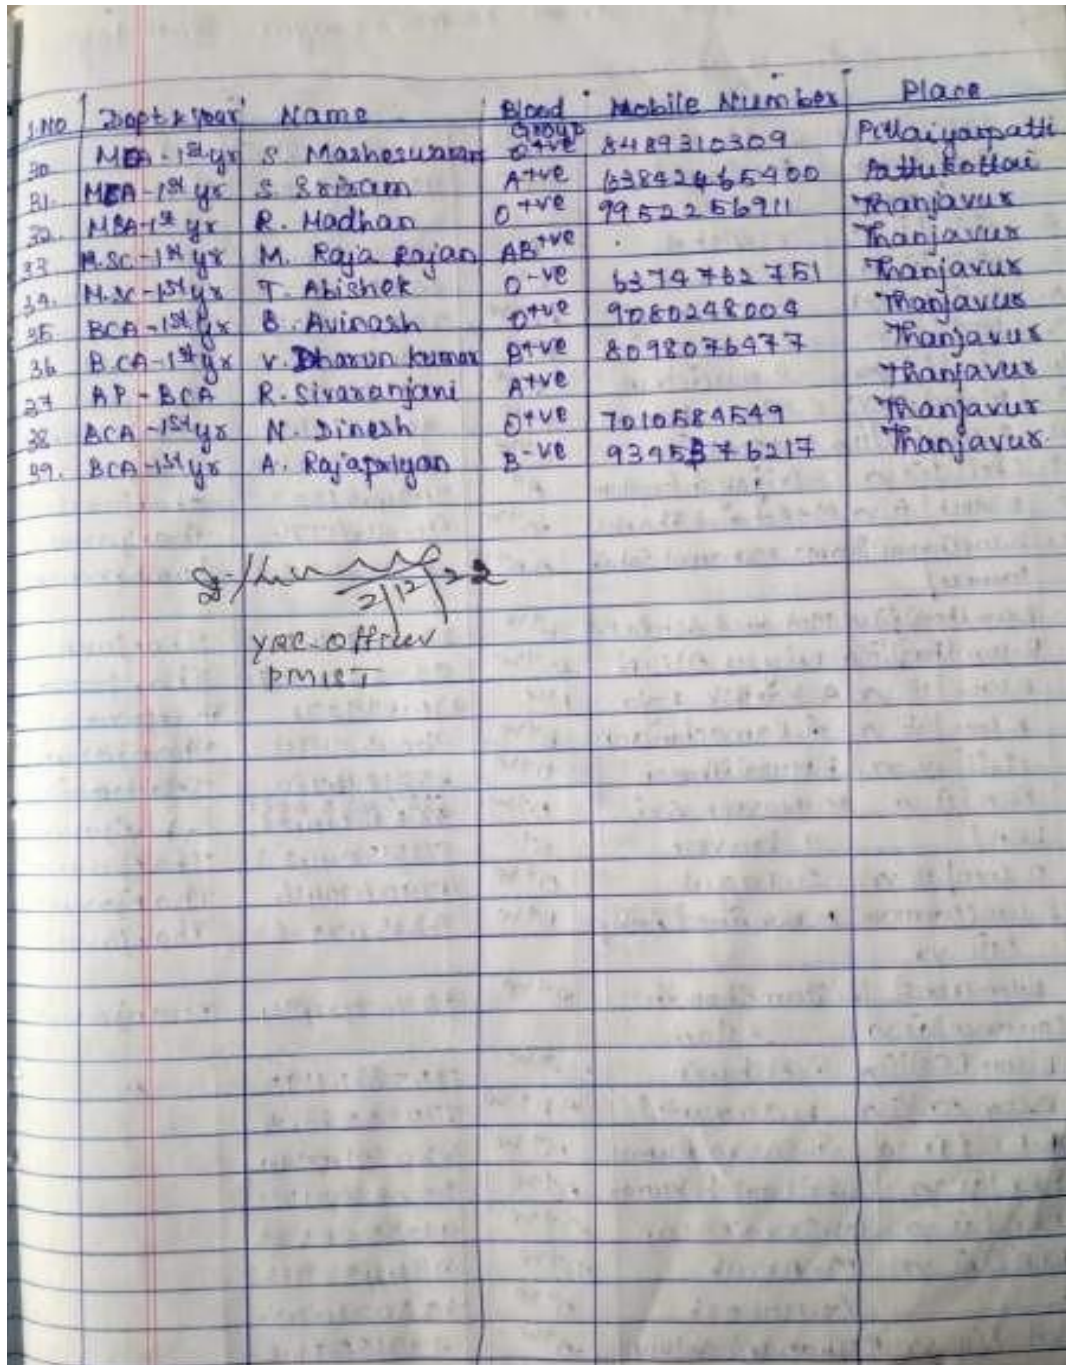 S.NO Dept & Year Name Blood Group Mobile Number Place
30 MBA-1st yr S. Masheswaran O+ve 8489310309 Pillaiyarpatti
31. MBA-1st yr S Sriram A+ve Pattukottai
32. MBA-1st yr R. Madhan O+ve 9952256911 Thanjavur
33 M.SC-1st yr M. Raja Rajan AB+ve Thanjavur
34. M.SC-1st yr T. Abishek O-ve 6374762751 Thanjavur
35 BCA-1st yr B. Avinash O+ve 9080248004 Thanjavur
36 B.CA-1st yr V. Dharun kumar B+ve 8098076477 Thanjavur
37 AP-BCA R. Sivaranjani A+ve Thanjavur
38. BCA-1st yr N. Dinesh O+ve 7010584549 Thanjavur
39. BCA-1st yr A. Rajapriyan B-ve Thanjavur.
2/12/22
YRC-Officer
PMIST